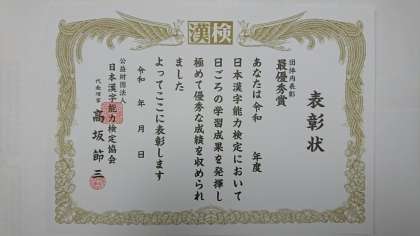 漢検
表彰状
団体内表彰
最優秀賞
あなたは令和 年度
日本漢字能力検定において
日ごろの学習成果を発揮し
極めて優秀な成績を収められ
ました
よってここに表彰します
令和 年 月 日
公益財団法人
日本漢字能力検定協会
代表理事 高坂節三